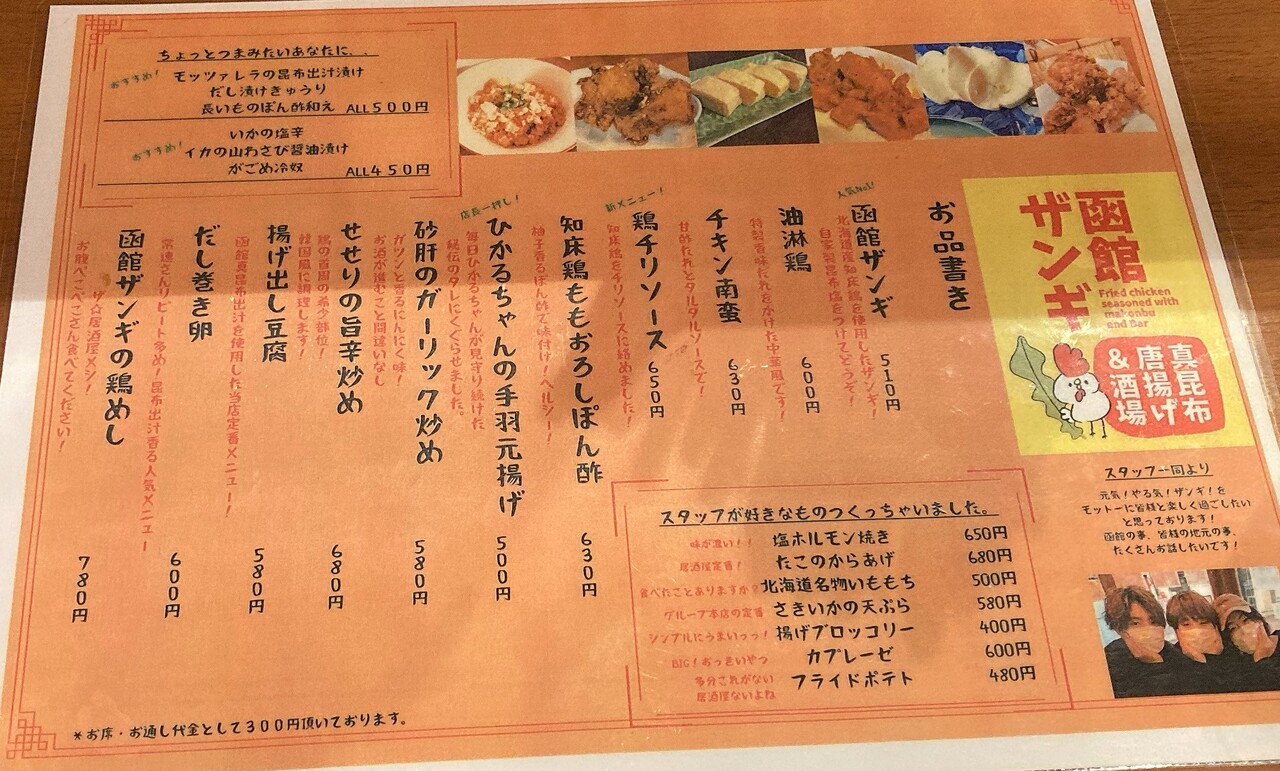 ちょっとつまみたいあなたに...
おすすめ!
モッツァレラの昆布出汁漬け
だし漬けきゅうり
長いものぽん酢和え ALL500円
いかの塩辛
おすすめ!
イカの山わさび醤油漬け
がごめ冷奴 ALL450円
函館
ザンギ
Fried chicken
seasoned with
makonbu
and Bar
真昆布
唐揚げ
&酒場
お品書き
人気No1!
函館ザンギ 510円
北海道産知床鶏を使用したザンギ!
自家製昆布塩をつけてどうぞ!
油淋鶏 600円
特製香味だれをかけた中華風です!
チキン南蛮 630円
甘酢だれとタルタルソースで!
新メニュー!
鶏チリソース 650円
知床鶏をチリソースに絡めました!
知床鶏ももおろしぽん酢 630円
柚子香るぽん酢で味付け!ヘルシー!
店長一押し!
ひかるちゃんの手羽元揚げ 500円
毎日ひかるちゃんが見守り続けた
秘伝のタレにくぐらせました。
砂肝のガーリック炒め 580円
ガツンと香るにんにく味!
お酒が進むこと間違いなし
せせりの旨辛炒め 680円
鶏の首周の希少部位!
韓国風に調理します!
揚げ出し豆腐 580円
函館真昆布出汁を使用した当店定番メニュー!
だし巻き卵 600円
常連さんリピート多め!昆布出汁香る人気メニュー
函館ザンギの鶏めし 780円
ザ☆居酒屋メシ!
お腹ぺこぺこさん食べてください!
スタッフが好きなものつくっちゃいました。
味が濃い!! 塩ホルモン焼き 650円
居酒屋定番! たこのからあげ 680円
食べたことありますか? 北海道名物いももち 500円
グループ本店の定番 さきいかの天ぷら 580円
シンプルにうまいっっ! 揚げブロッコリー 400円
BIG!おっきいやつ カプレーゼ 600円
多分これがない
居酒屋ないよね フライドポテト 480円
スタッフ一同より
元気!やる気!ザンギ!を
モットーに皆様と楽しく過ごしたい
と思っております!
函館の事、皆様の地元の事、
たくさんお話したいです!
*お席・お通し代金として300円頂いております。